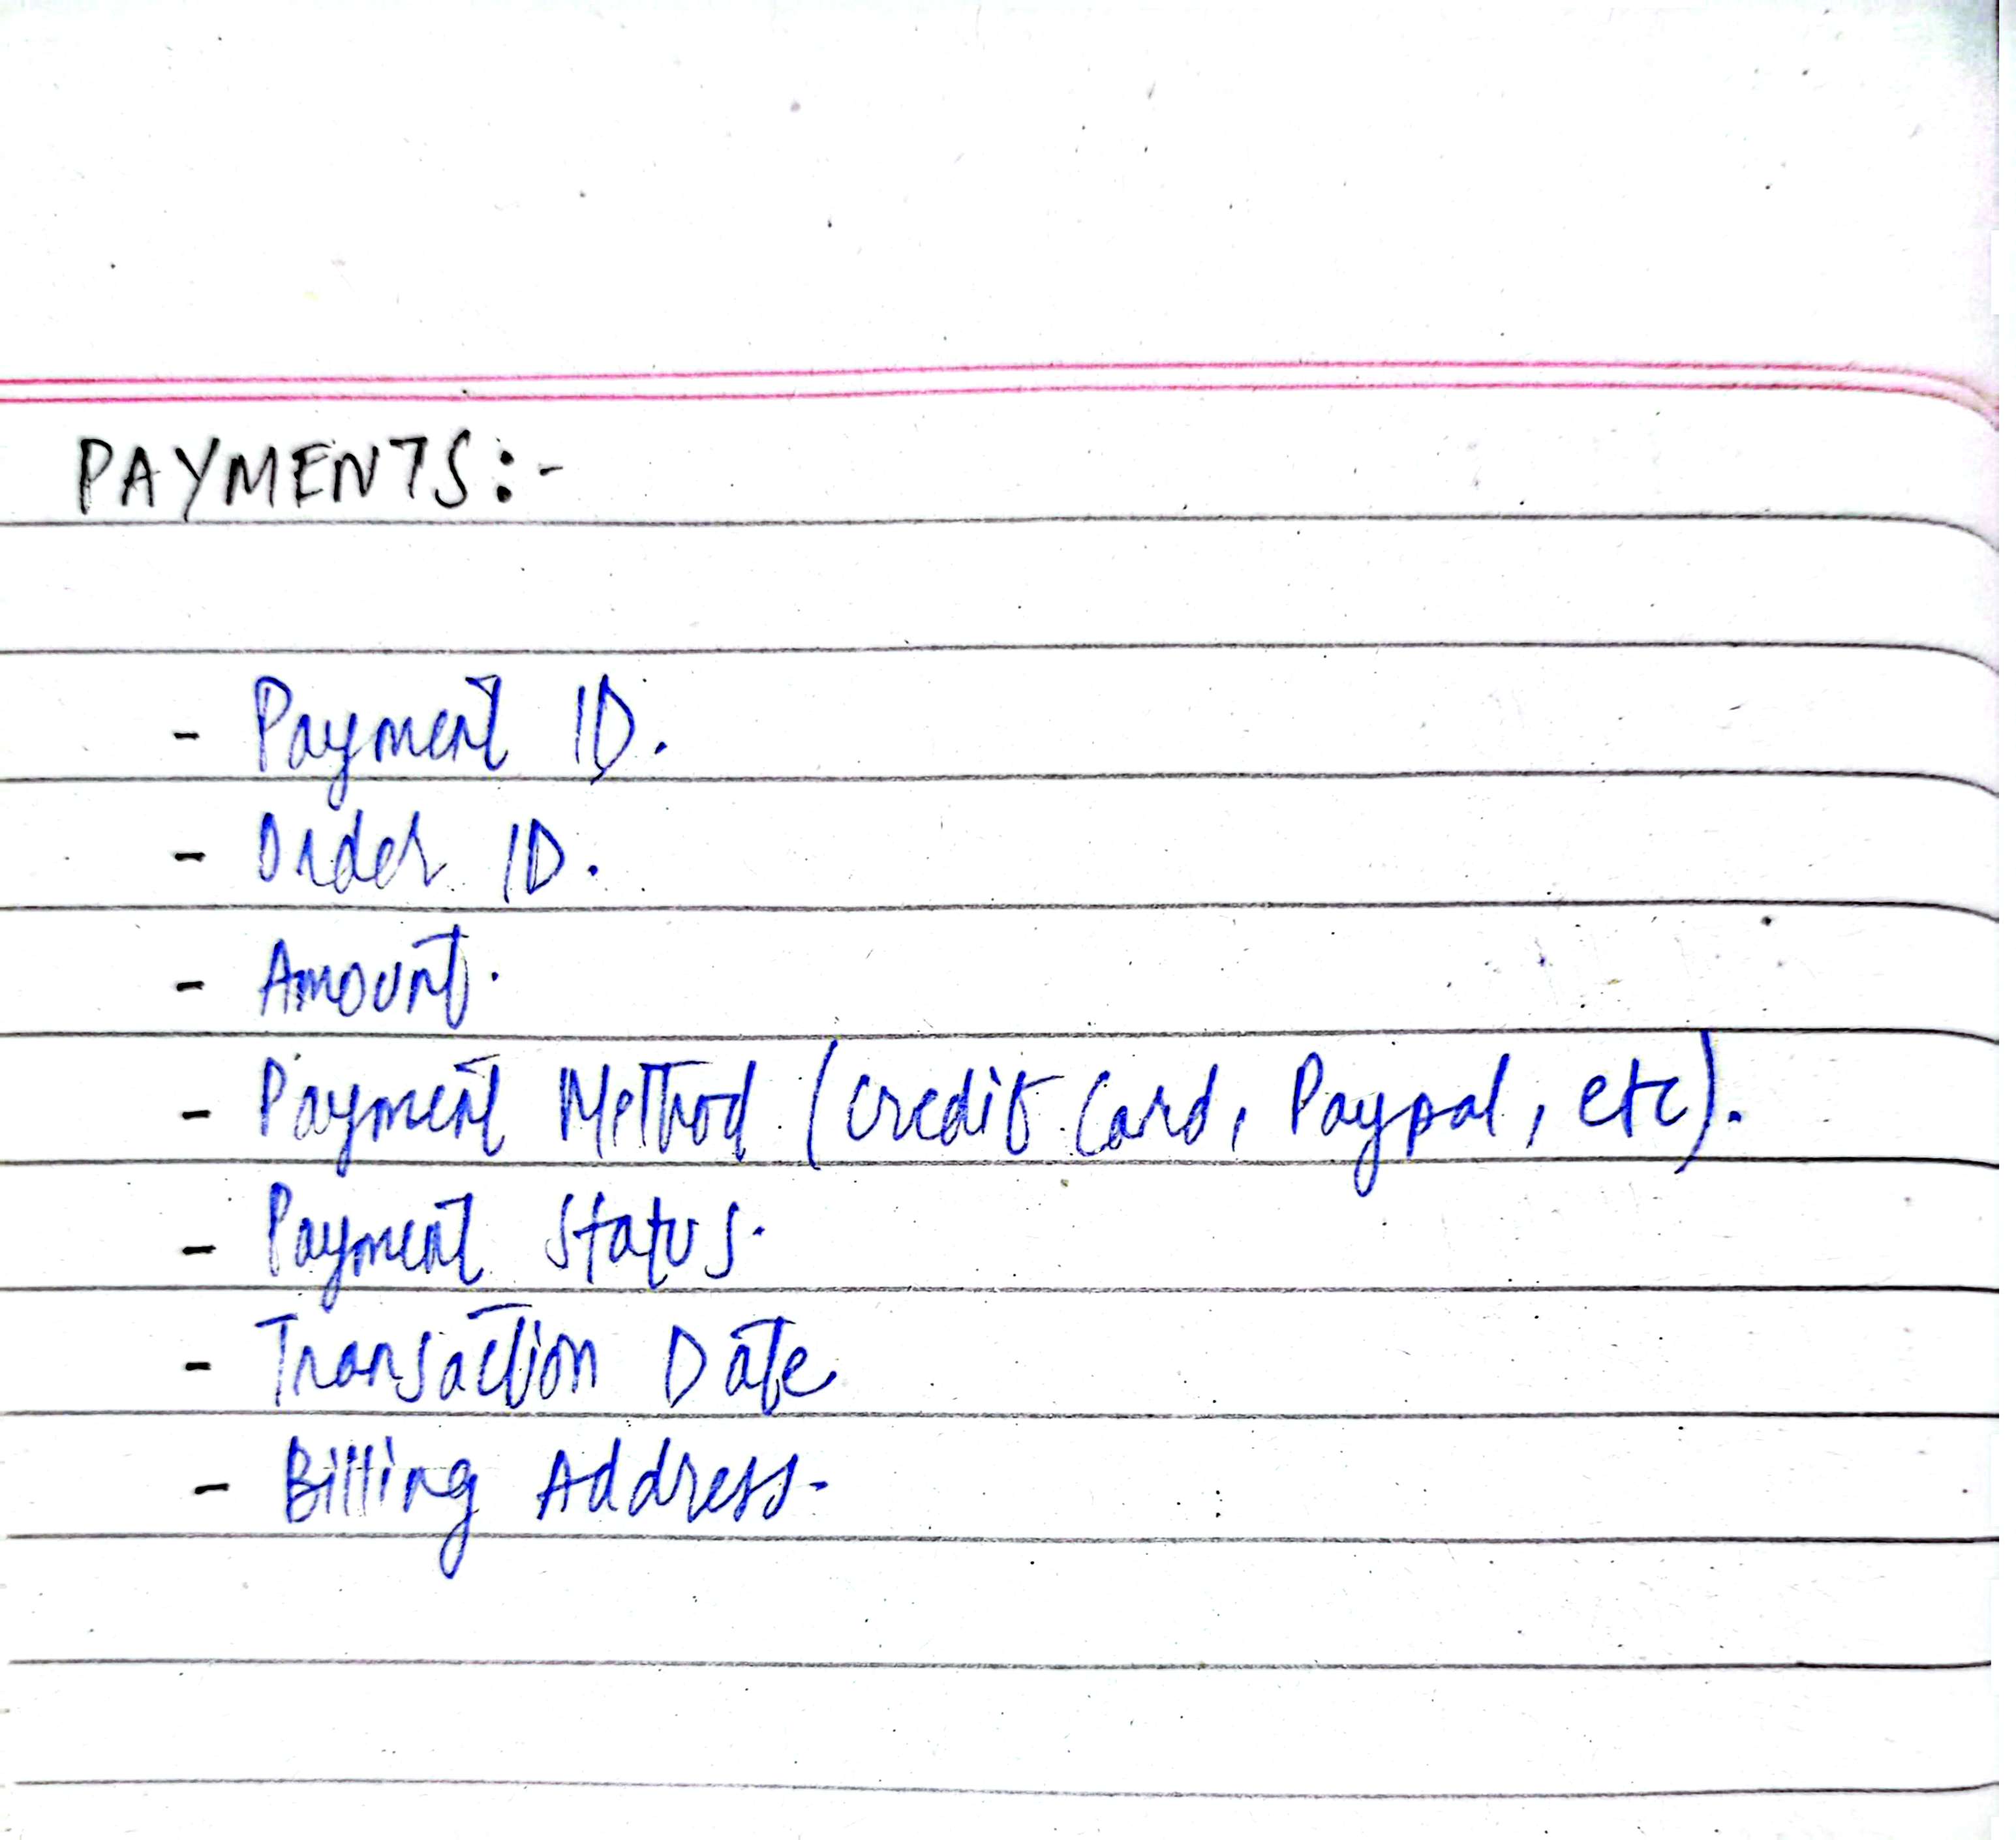 PAYMENTS:-
- Payment ID.
- Order ID.
- Amount.
- Payment Method (credit Card, Paypal, etc).
- Payment Status.
- Transaction Date
- Billing Address.